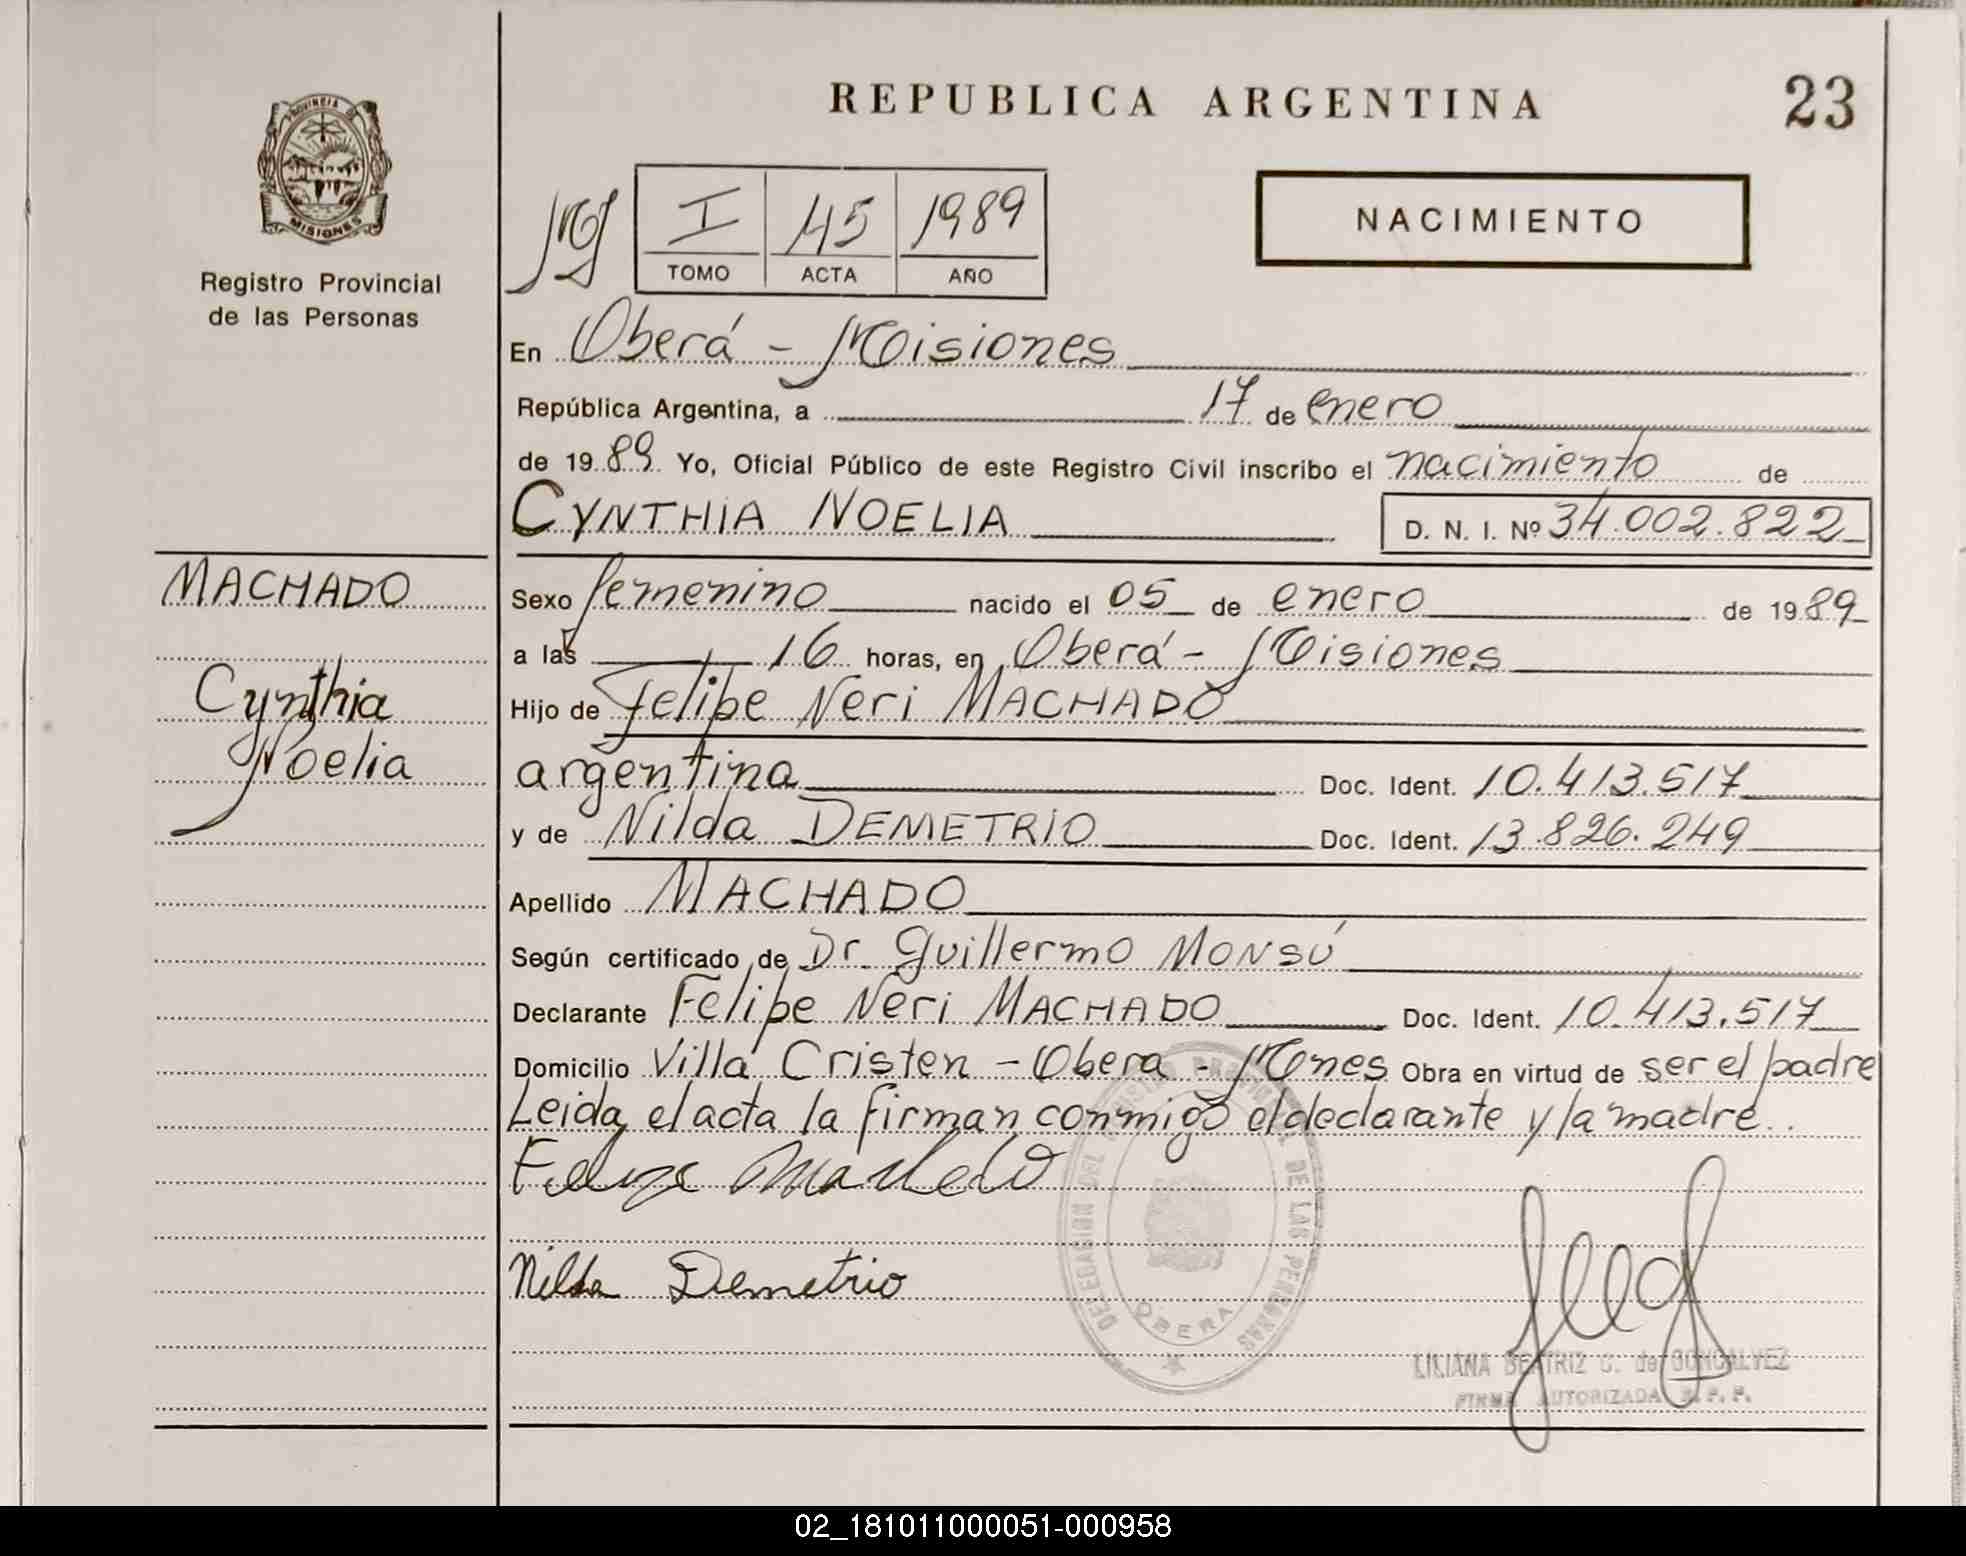 REPUBLICA ARGENTINA
23
PROVINCIA DE
MISIONES
Registro Provincial
de las Personas
I 45 1989
TOMO ACTA AÑO
NACIMIENTO
En Oberá - Misiones
República Argentina, a 17 de enero
de 1989 Yo, Oficial Público de este Registro Civil inscribo el nacimiento de
CYNTHIA NOELIA D. N. I. Nº 34.002.822
MACHADO
Cynthia
Noelia
Sexo femenino nacido el 05 de enero de 1989
a las 16 horas, en Oberá - Misiones
Hijo de Felipe Neri MACHADO
argentina Doc. Ident. 10.413.517
y de Nilda DEMETRIO Doc. Ident. 13.826.249
Apellido MACHADO
Según certificado de Dr. Guillermo MONSÚ
Declarante Felipe Neri MACHADO Doc. Ident. 10.413.517
Domicilio Villa Cristen - Obera - Mnes Obra en virtud de ser el padre
Leida el acta la firman conmigo el declarante y la madre.
Felipe Machado
Nilda Demetrio
DELEGACION DEL REGISTRO PROVINCIAL DE LAS PERSONAS
OBERA
LILIANA BEATRIZ C. de GONCALVEZ
FIRMA AUTORIZADA R. P. P.
02_181011000051-000958